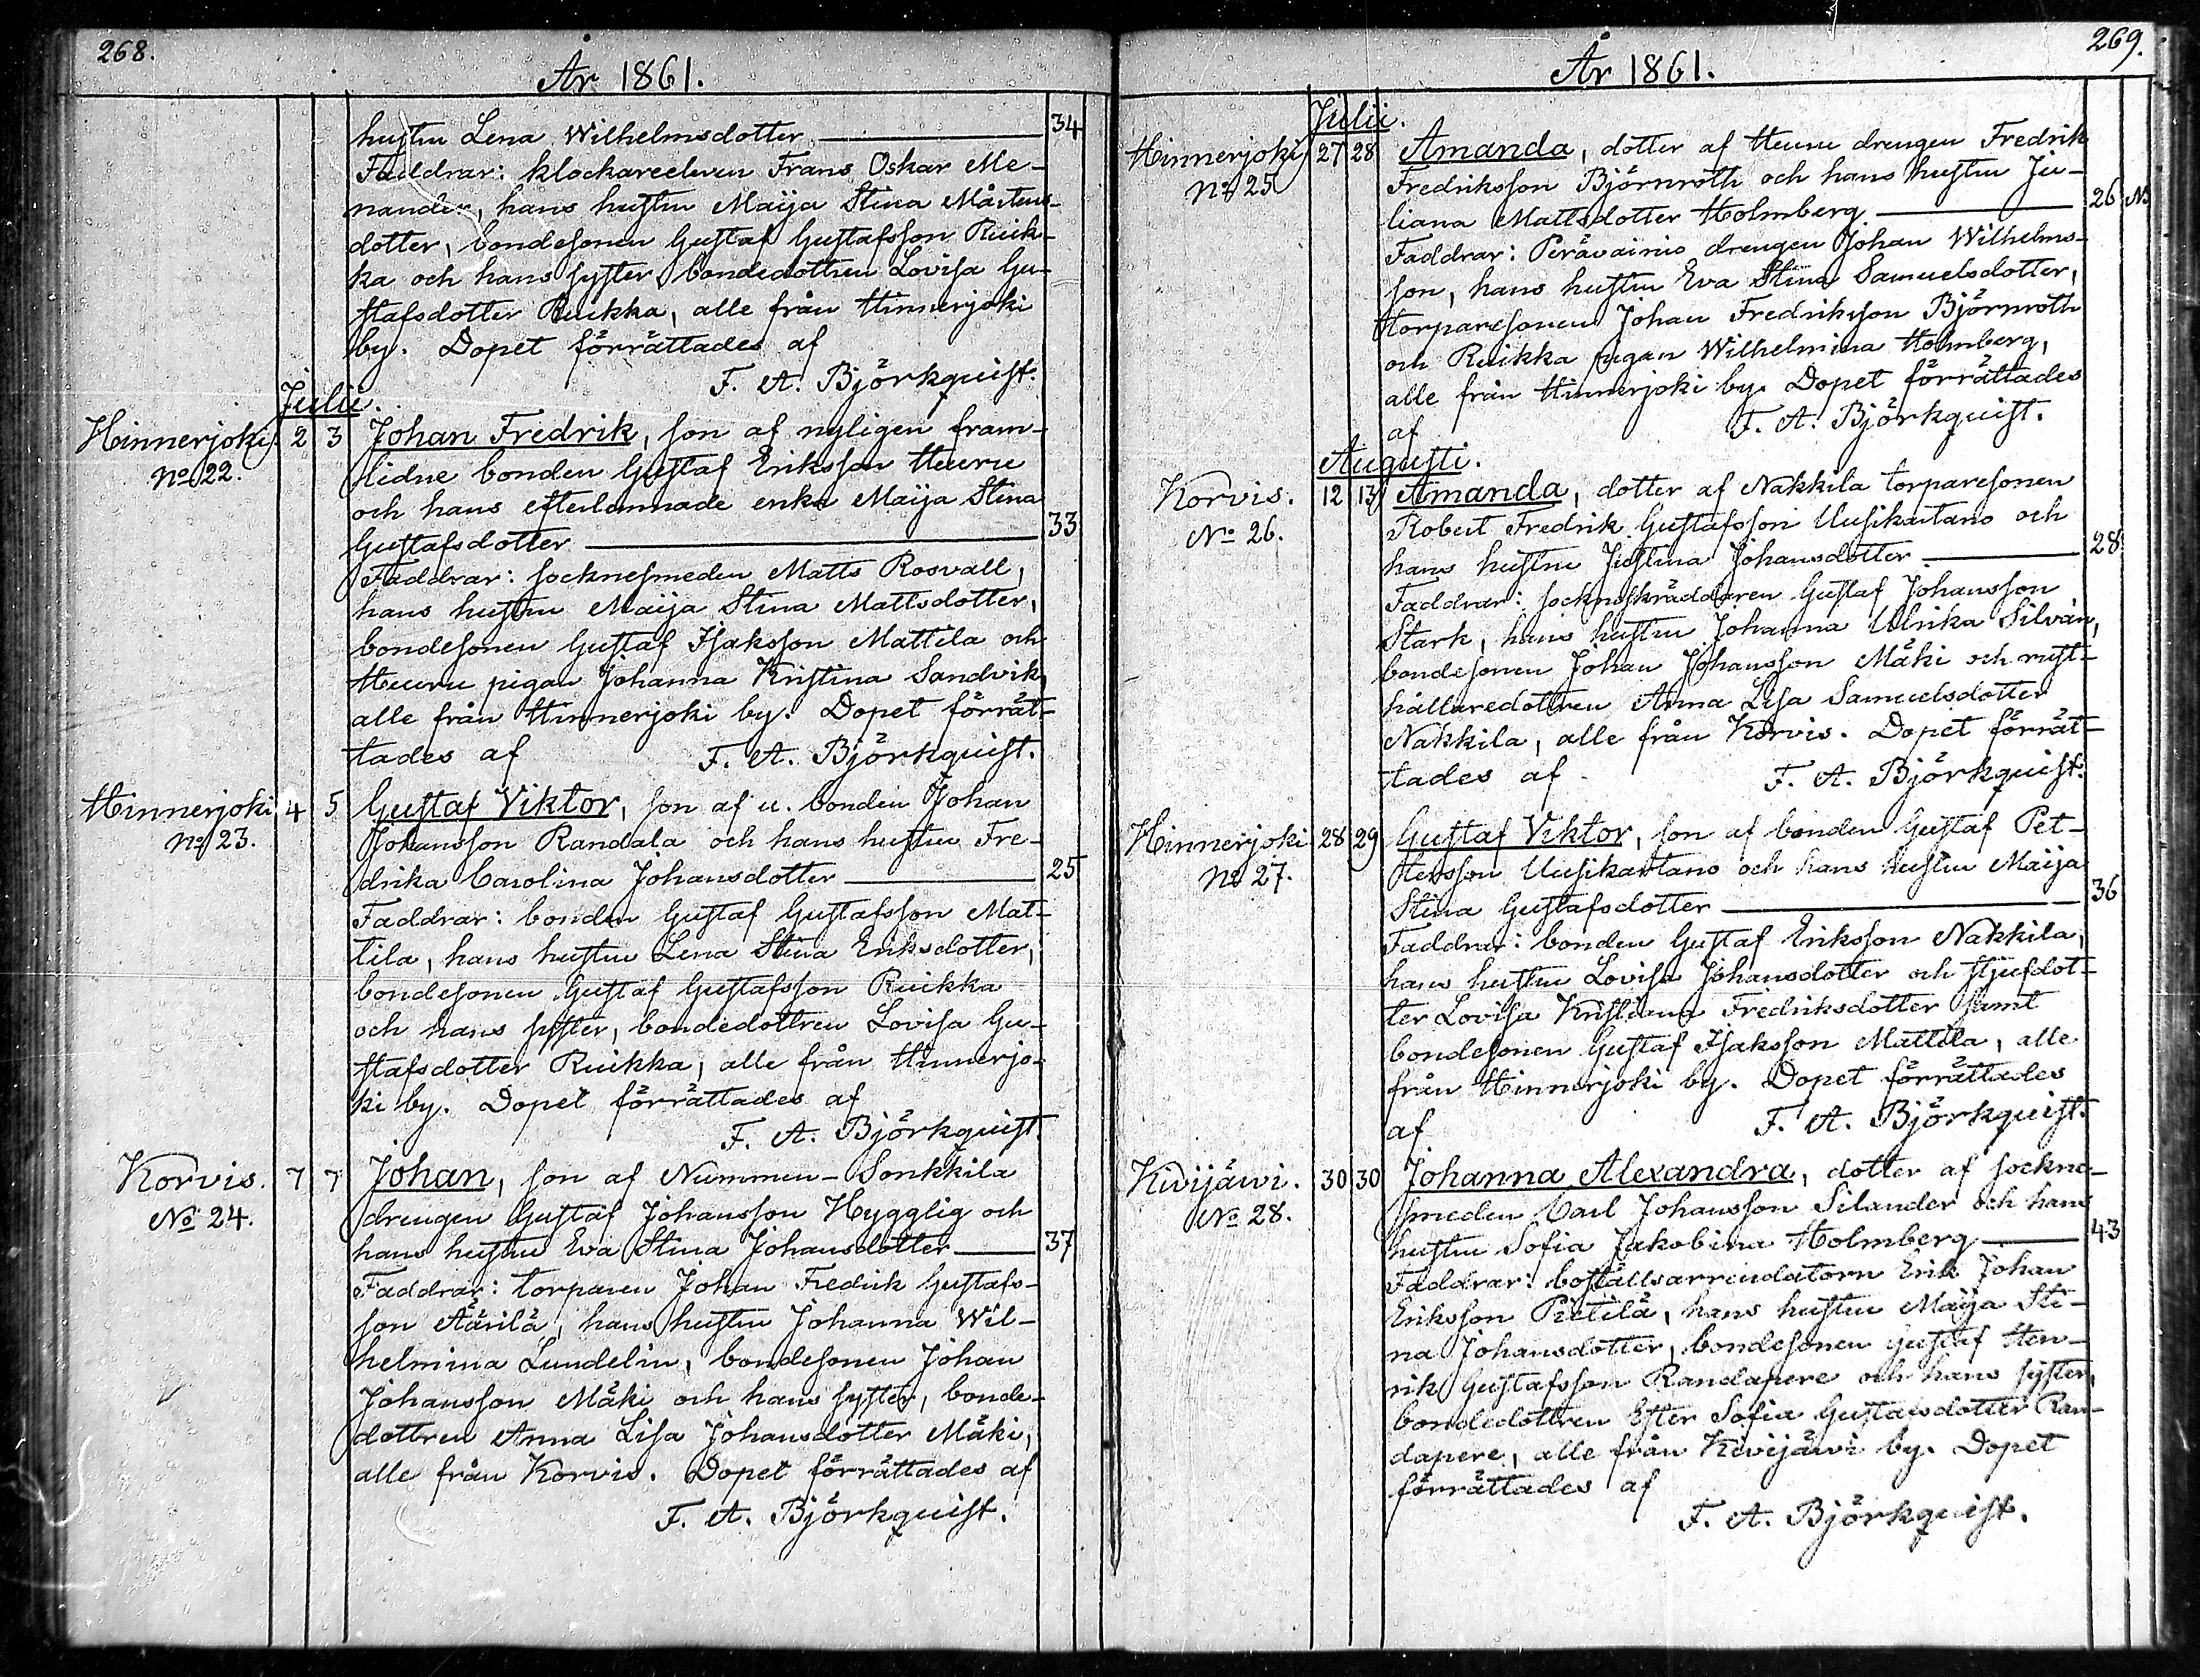 268.
År 1861.
hustru Lena Wilhelmsdotter 34
Faddrar: klockareeleven Frans Oskar Me-
nander, hans hustru Maija Stina Mårtens-
dotter, bondesonen Gustaf Gustafsson Ruik-
ka och hans syster bondedottren Lovisa Gu-
stafsdotter Ruikka, alle från Hinnerjoki
by. Dopet förrättades af
F. A. Björkquist.
Julii.
Hinnerjoki 2 3 Johan Fredrik, son af nyligen fram-
No 22. lidne bonden Gustaf Eriksson Heuru
och hans efterlemnade enka Maija Stina
Gustafsdotter 33
Faddrar: socknesmeden Matts Rosvall,
hans hustru Maija Stina Mattsdotter,
bondesonen Gustaf Isaksson Mattila och
Heuru pigan Johanna Kristina Sandvik,
alle från Hinnerjoki by. Dopet förrät-
tades af F. A. Björkquist.
Hinnerjoki 4 5 Gustaf Viktor, son af u. bonden Johan
No 23. Johansson Randala och hans hustru Fre-
drika Carolina Johansdotter 25
Faddrar: bonden Gustaf Gustafsson Mat-
tila, hans hustru Lena Stina Eriksdotter,
bondesonen Gustaf Gustafsson Ruikka
och hans syster, bondedottren Lovisa Gu-
stafsdotter Ruikka, alle från Hinnerjo-
ki by. Dopet förrättades af
F. A. Björkquist.
Korvis. 7 7 Johan, son af Nummen-Sonkkila
No 24. drengen Gustaf Johansson Hygglig och
hans hustru Eva Stina Johansdotter 37
Faddrar: torparen Johan Fredrik Gustafs-
son Äärilä, hans hustru Johanna Wil-
helmina Lundelin, bondesonen Johan
Johansson Mäki och hans syster, bonde-
dottren Anna Lisa Johansdotter Mäki,
alle från Korvis. Dopet förrättades af
F. A. Björkquist.
269.
År 1861.
Julii.
Hinnerjoki 27 28 Amanda, dotter af Heuru drengen Fredrik
No 25 Fredriksson Björnroth och hans hustru Ju-
liana Mattsdotter Holmberg 26
Faddrar: Perävainio drengen Johan Wilhelms-
son, hans hustru Eva Stina Samuelsdotter,
torparesonen Johan Fredriksson Björnroth
och Ruikka pigan Wilhelmina Holmberg,
alle från Hinnerjoki by. Dopet förrättades
af F. A. Björkquist.
Augusti.
Korvis. 12 13 Amanda, dotter af Nakkila torparesonen
No 26. Robert Fredrik Gustafsson Uusikartano och
hans hustru Justina Johansdotter 28
Faddrar: sockneskräddaren Gustaf Johansson
Stark, hans hustru Johanna Ulrika Silvån,
bondesonen Johan Johansson Mäki och rust-
hållaredottren Anna Lisa Samuelsdotter
Nakkila, alle från Korvis. Dopet förrät-
tades af F. A. Björkquist.
Hinnerjoki 28 29 Gustaf Viktor, son af bonden Gustaf Pet-
No 27. tersson Uusikartano och hans hustru Maija
Stina Gustafsdotter 36
Faddrar: bonden Gustaf Eriksson Nakkila,
hans hustru Lovisa Johansdotter och stjufdot-
ter Lovisa Kristiana Fredriksdotter samt
bondesonen Gustaf Isaksson Mattila, alle
från Hinnerjoki by. Dopet förrättades
af F. A. Björkquist.
Kivijäwi. 30 30 Johanna Alexandra, dotter af sockne-
No 28. smeden Carl Johansson Silander och hans
hustru Sofia Jakobina Holmberg 43
Faddrar: boställsarrendatorn Erik Johan
Eriksson Pietilä, hans hustru Maija Sti-
na Johansdotter, bondesonen Gustaf Hen-
rik Gustafsson Randapere och hans syster,
bondedottren Ester Sofia Gustafsdotter Ran-
dapere, alle från Kivijäwi by. Dopet
förrättades af
F. A. Björkquist.